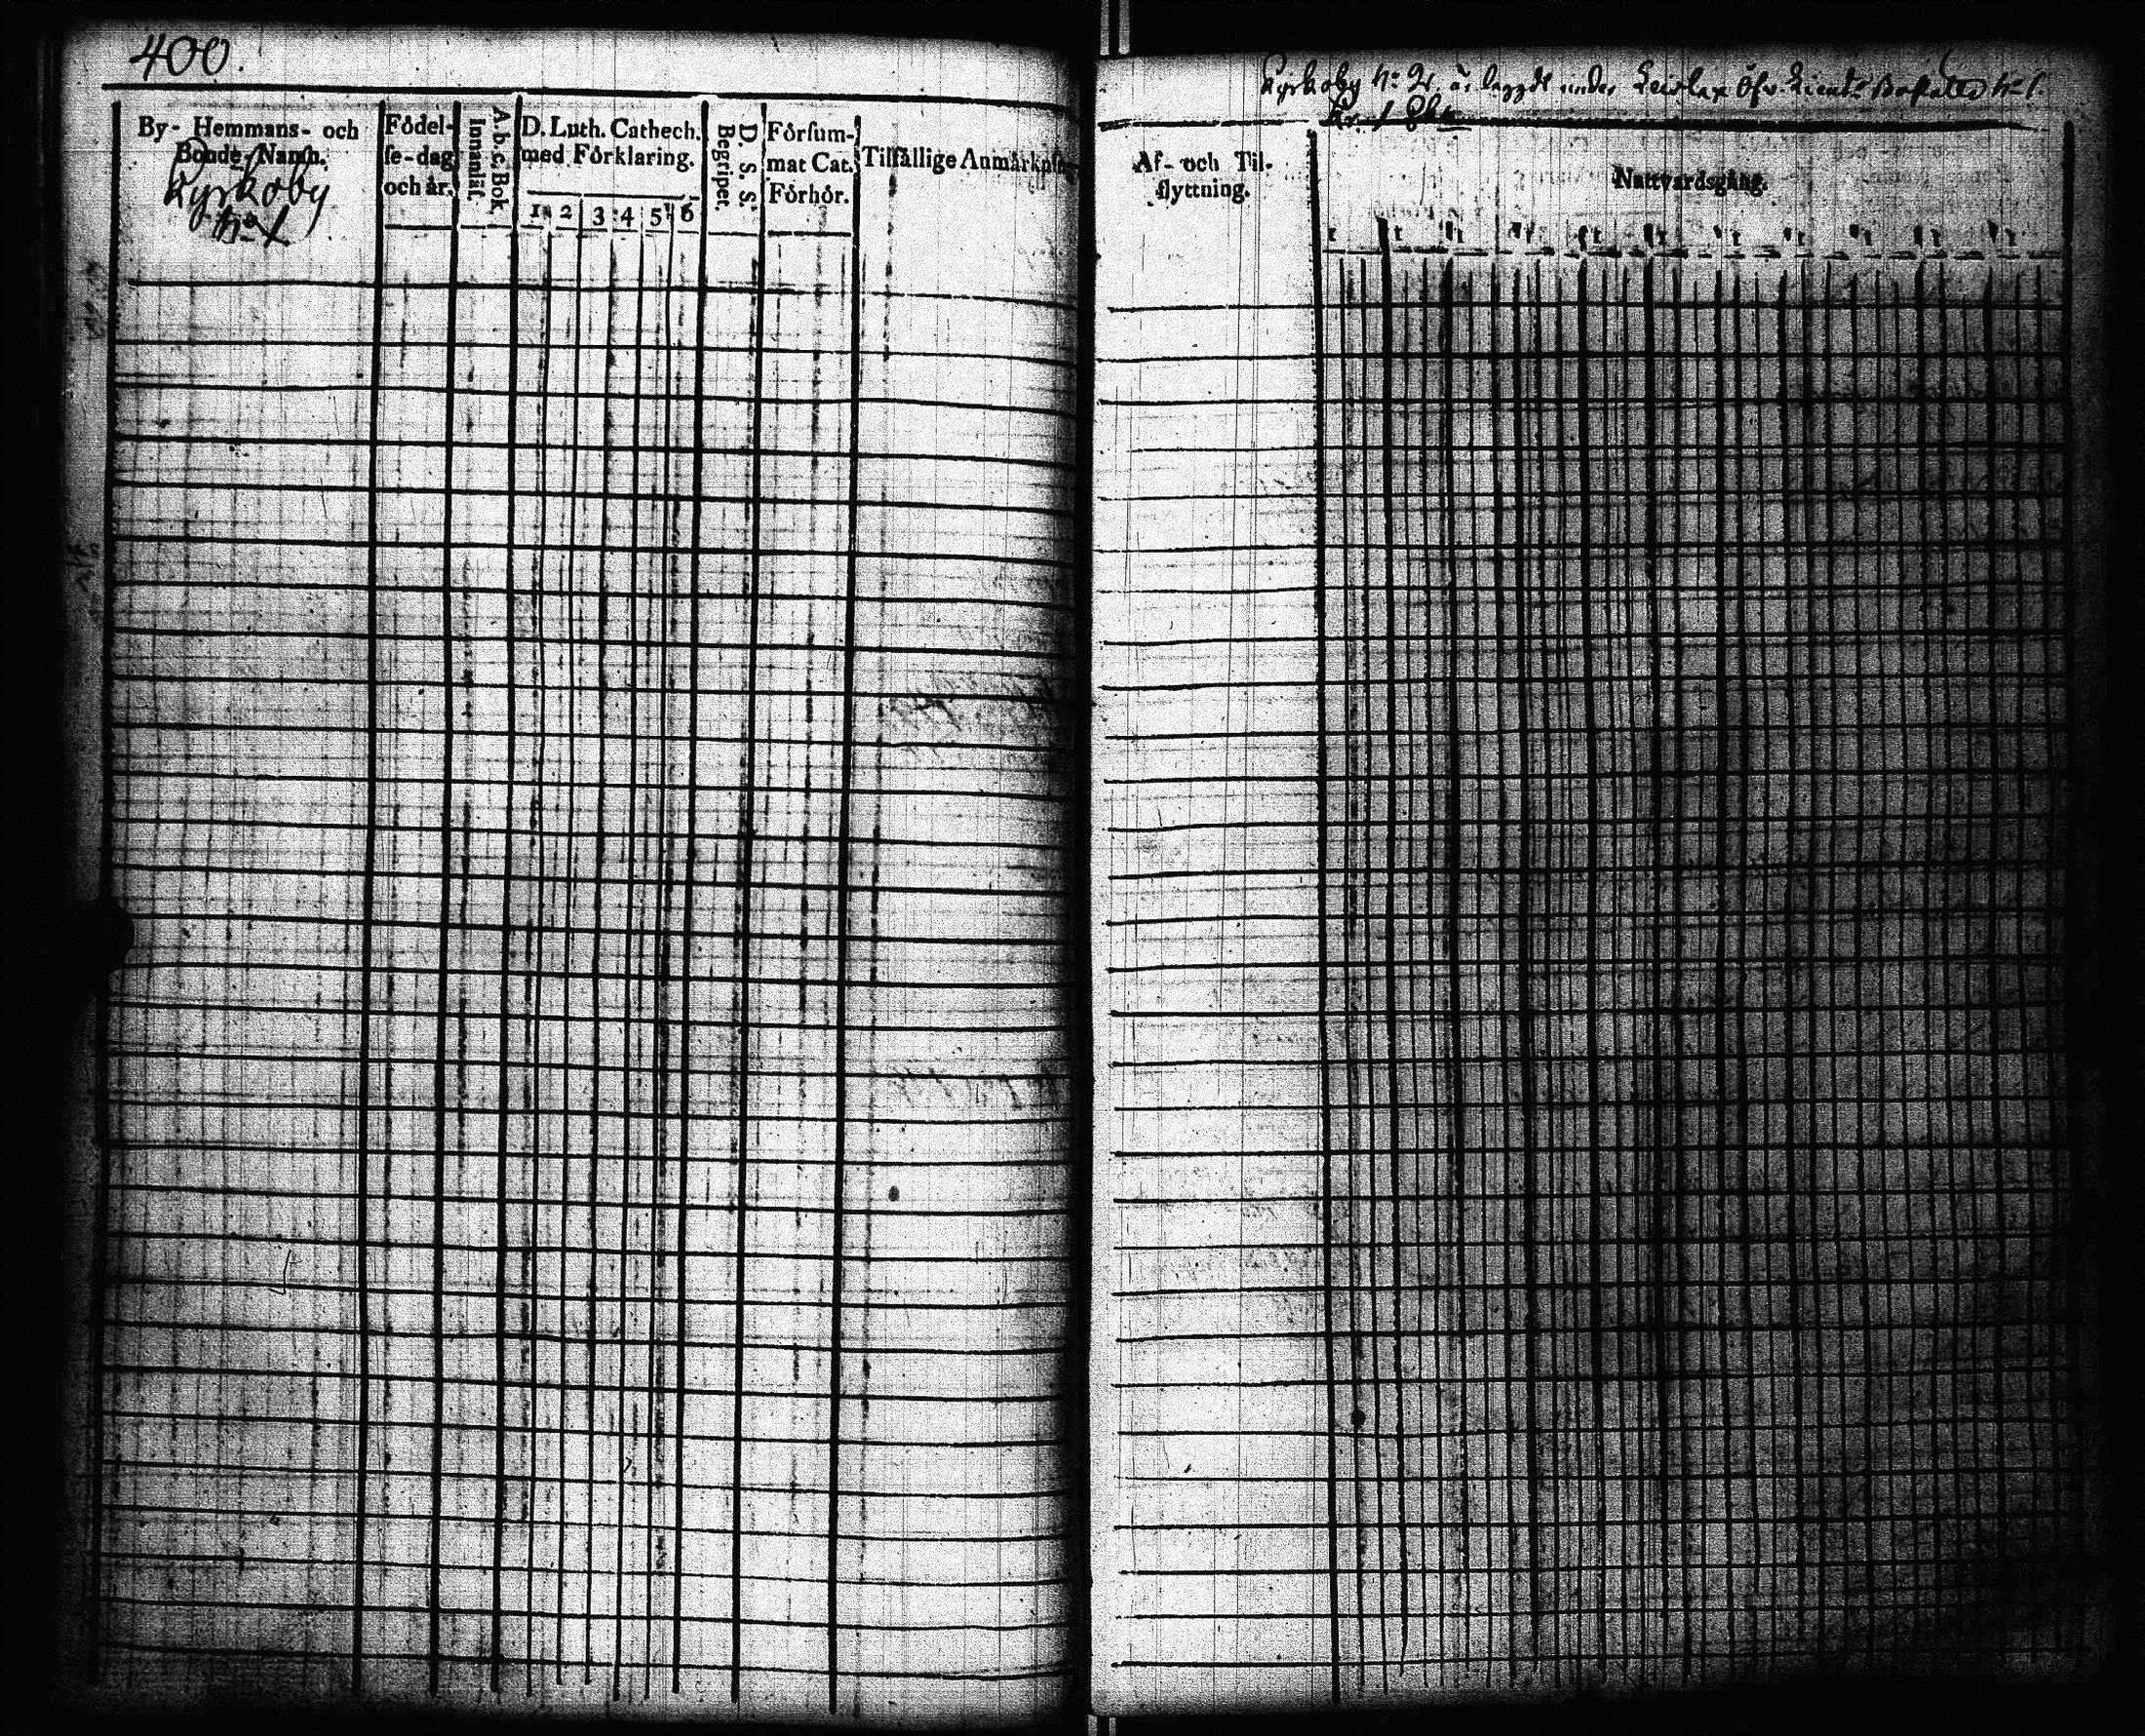 400.
By- Hemmans- och
Bonde-Namn.
Kyrkoby
No 1
Födel-
se-dag
och år.
A. b. c. Bok,
Innanläs.
D. Luth. Cathech.
med Förklaring.
1 2 3 4 5 6
D. S. S.
Begripet.
Försum-
mat Cat.
Förhör.
Tilfällige Anmärkn
Kyrkoby No 2 är lagdt under
Af- och Til-
flyttning.
Nattvardsgång.